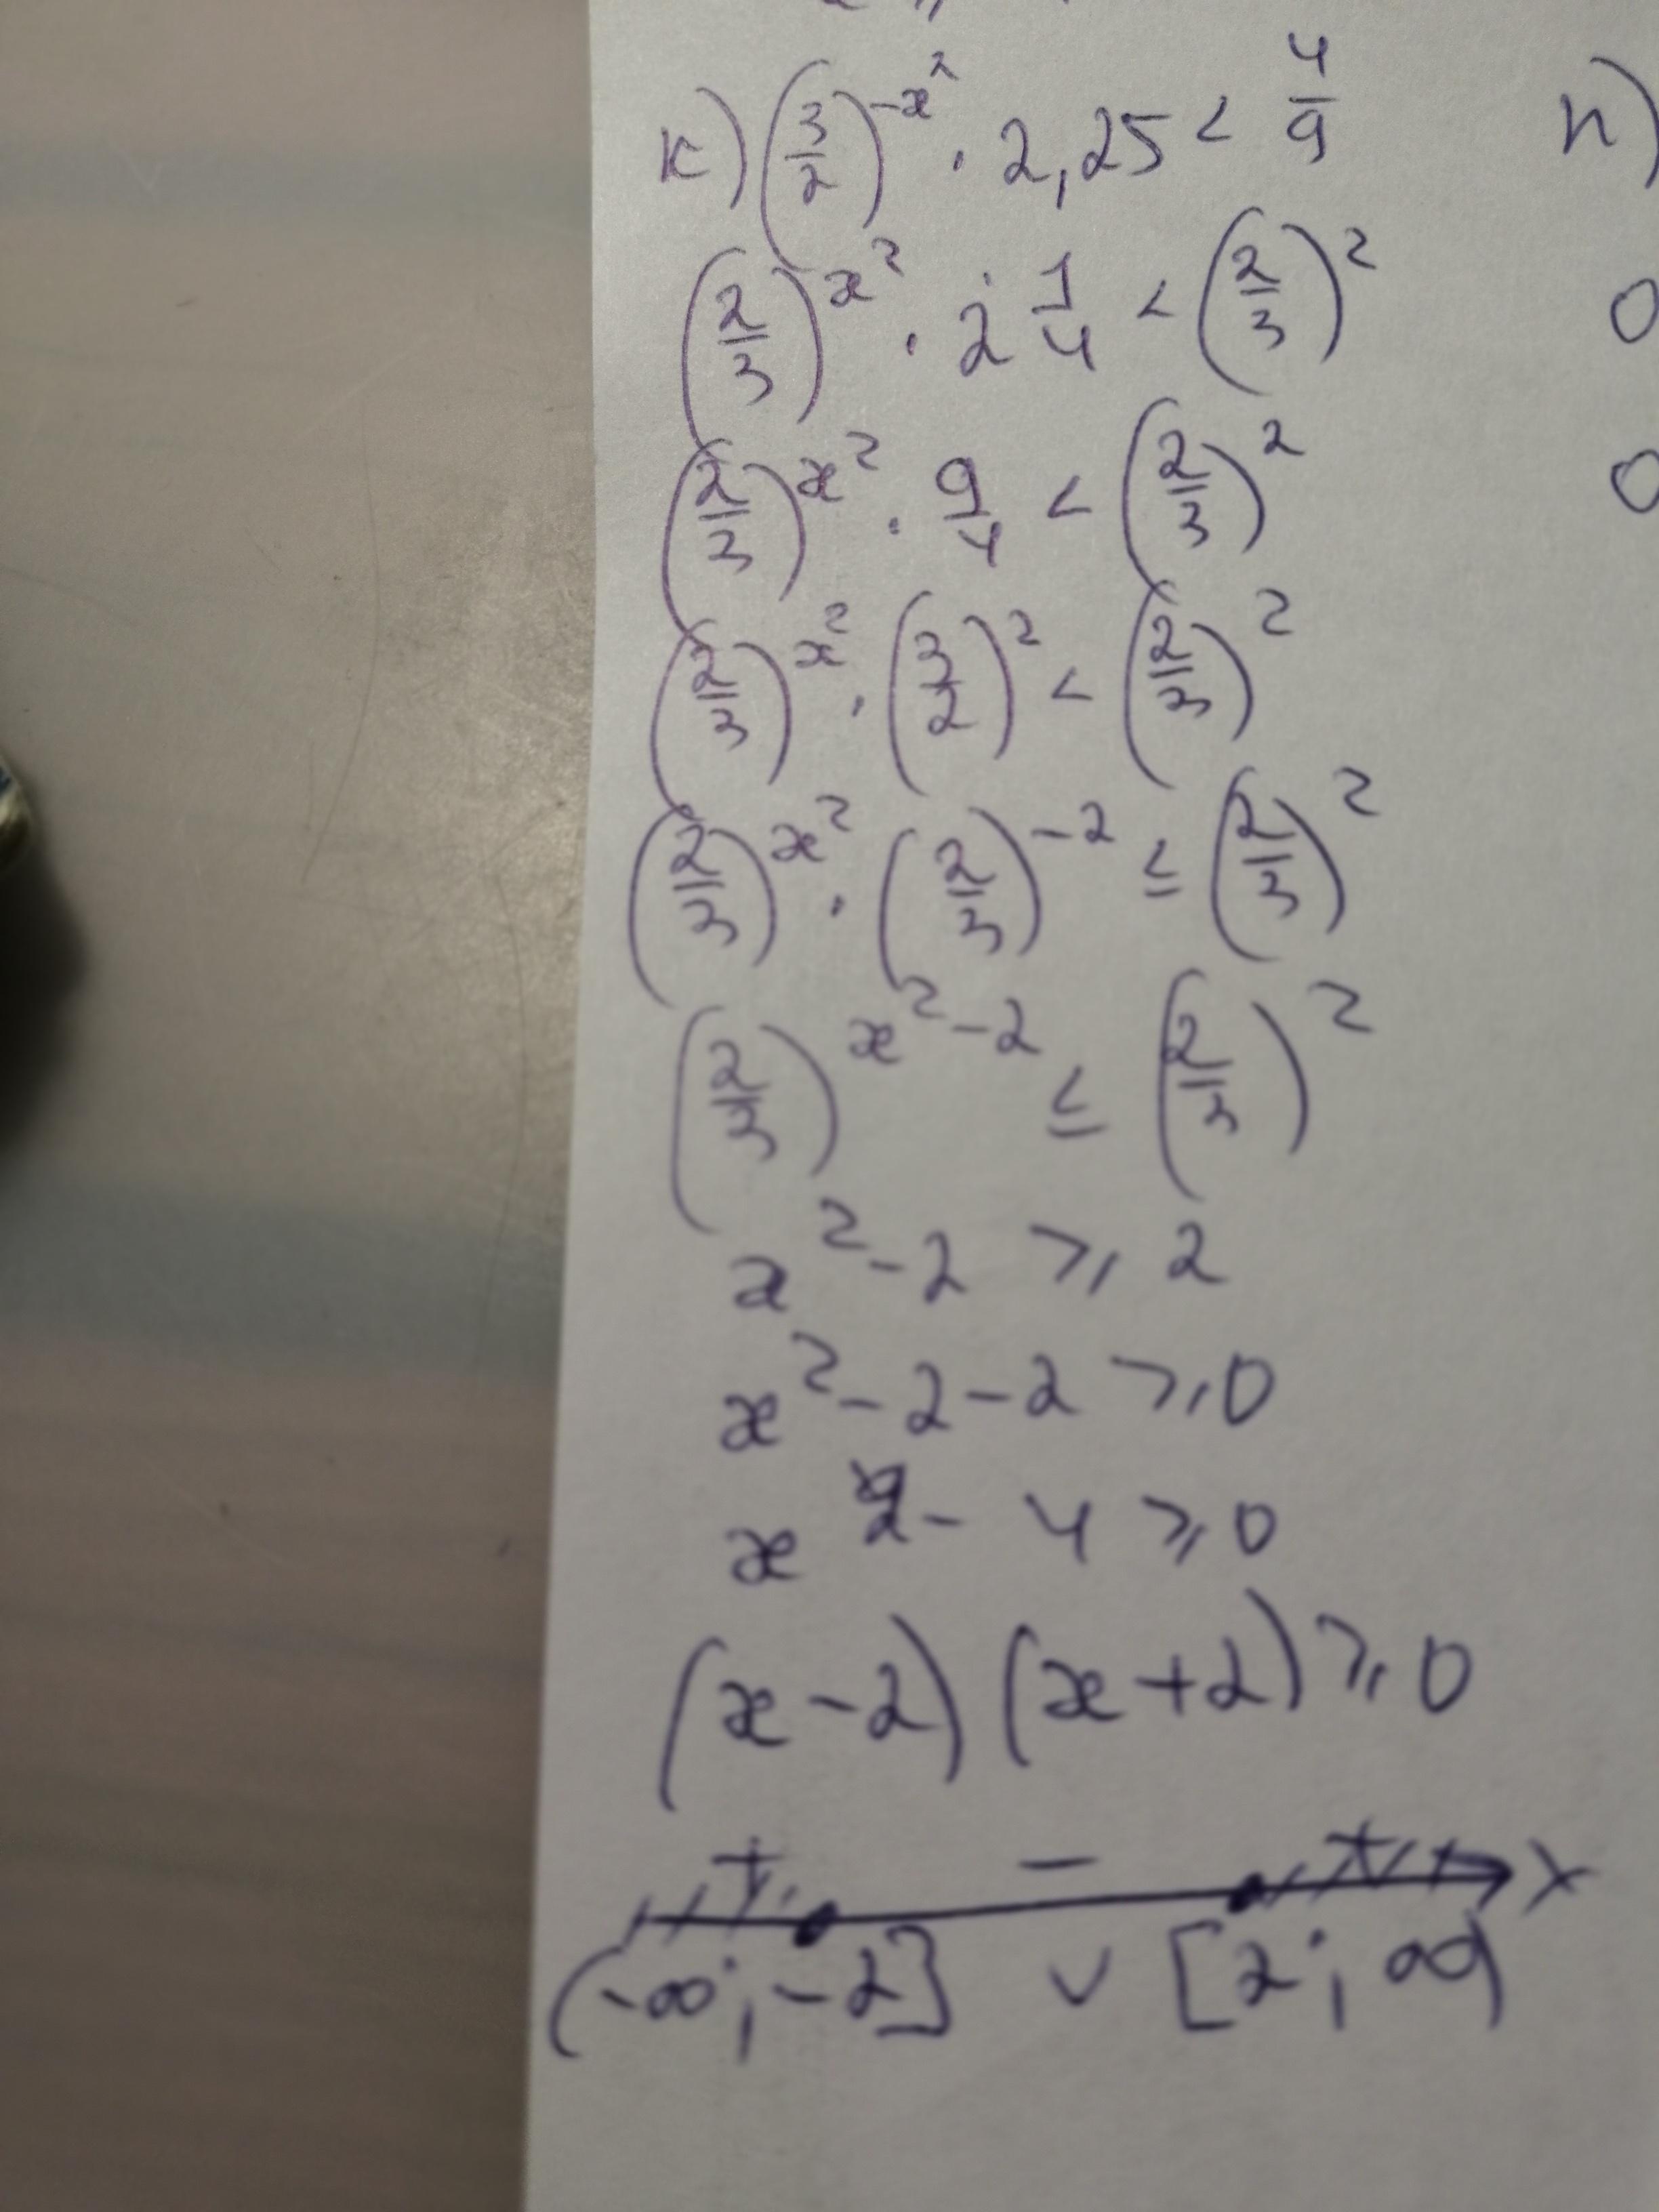 к) (3/2)^(-x^2) · 2,25 < 4/9
(2/3)^(x^2) · 2 1/4 < (2/3)^2
(2/3)^(x^2) · 9/4 < (2/3)^2
(2/3)^(x^2) · (3/2)^2 < (2/3)^2
(2/3)^(x^2) · (2/3)^(-2) ≤ (2/3)^2
(2/3)^(x^2-2) ≤ (2/3)^2
x^2 - 2 ⩾ 2
x^2 - 2 - 2 ⩾ 0
x^2 - 4 ⩾ 0
(x - 2) (x + 2) ⩾ 0
+ - + x
(-∞; -2] ∪ [2; ∞)
n)
0
0